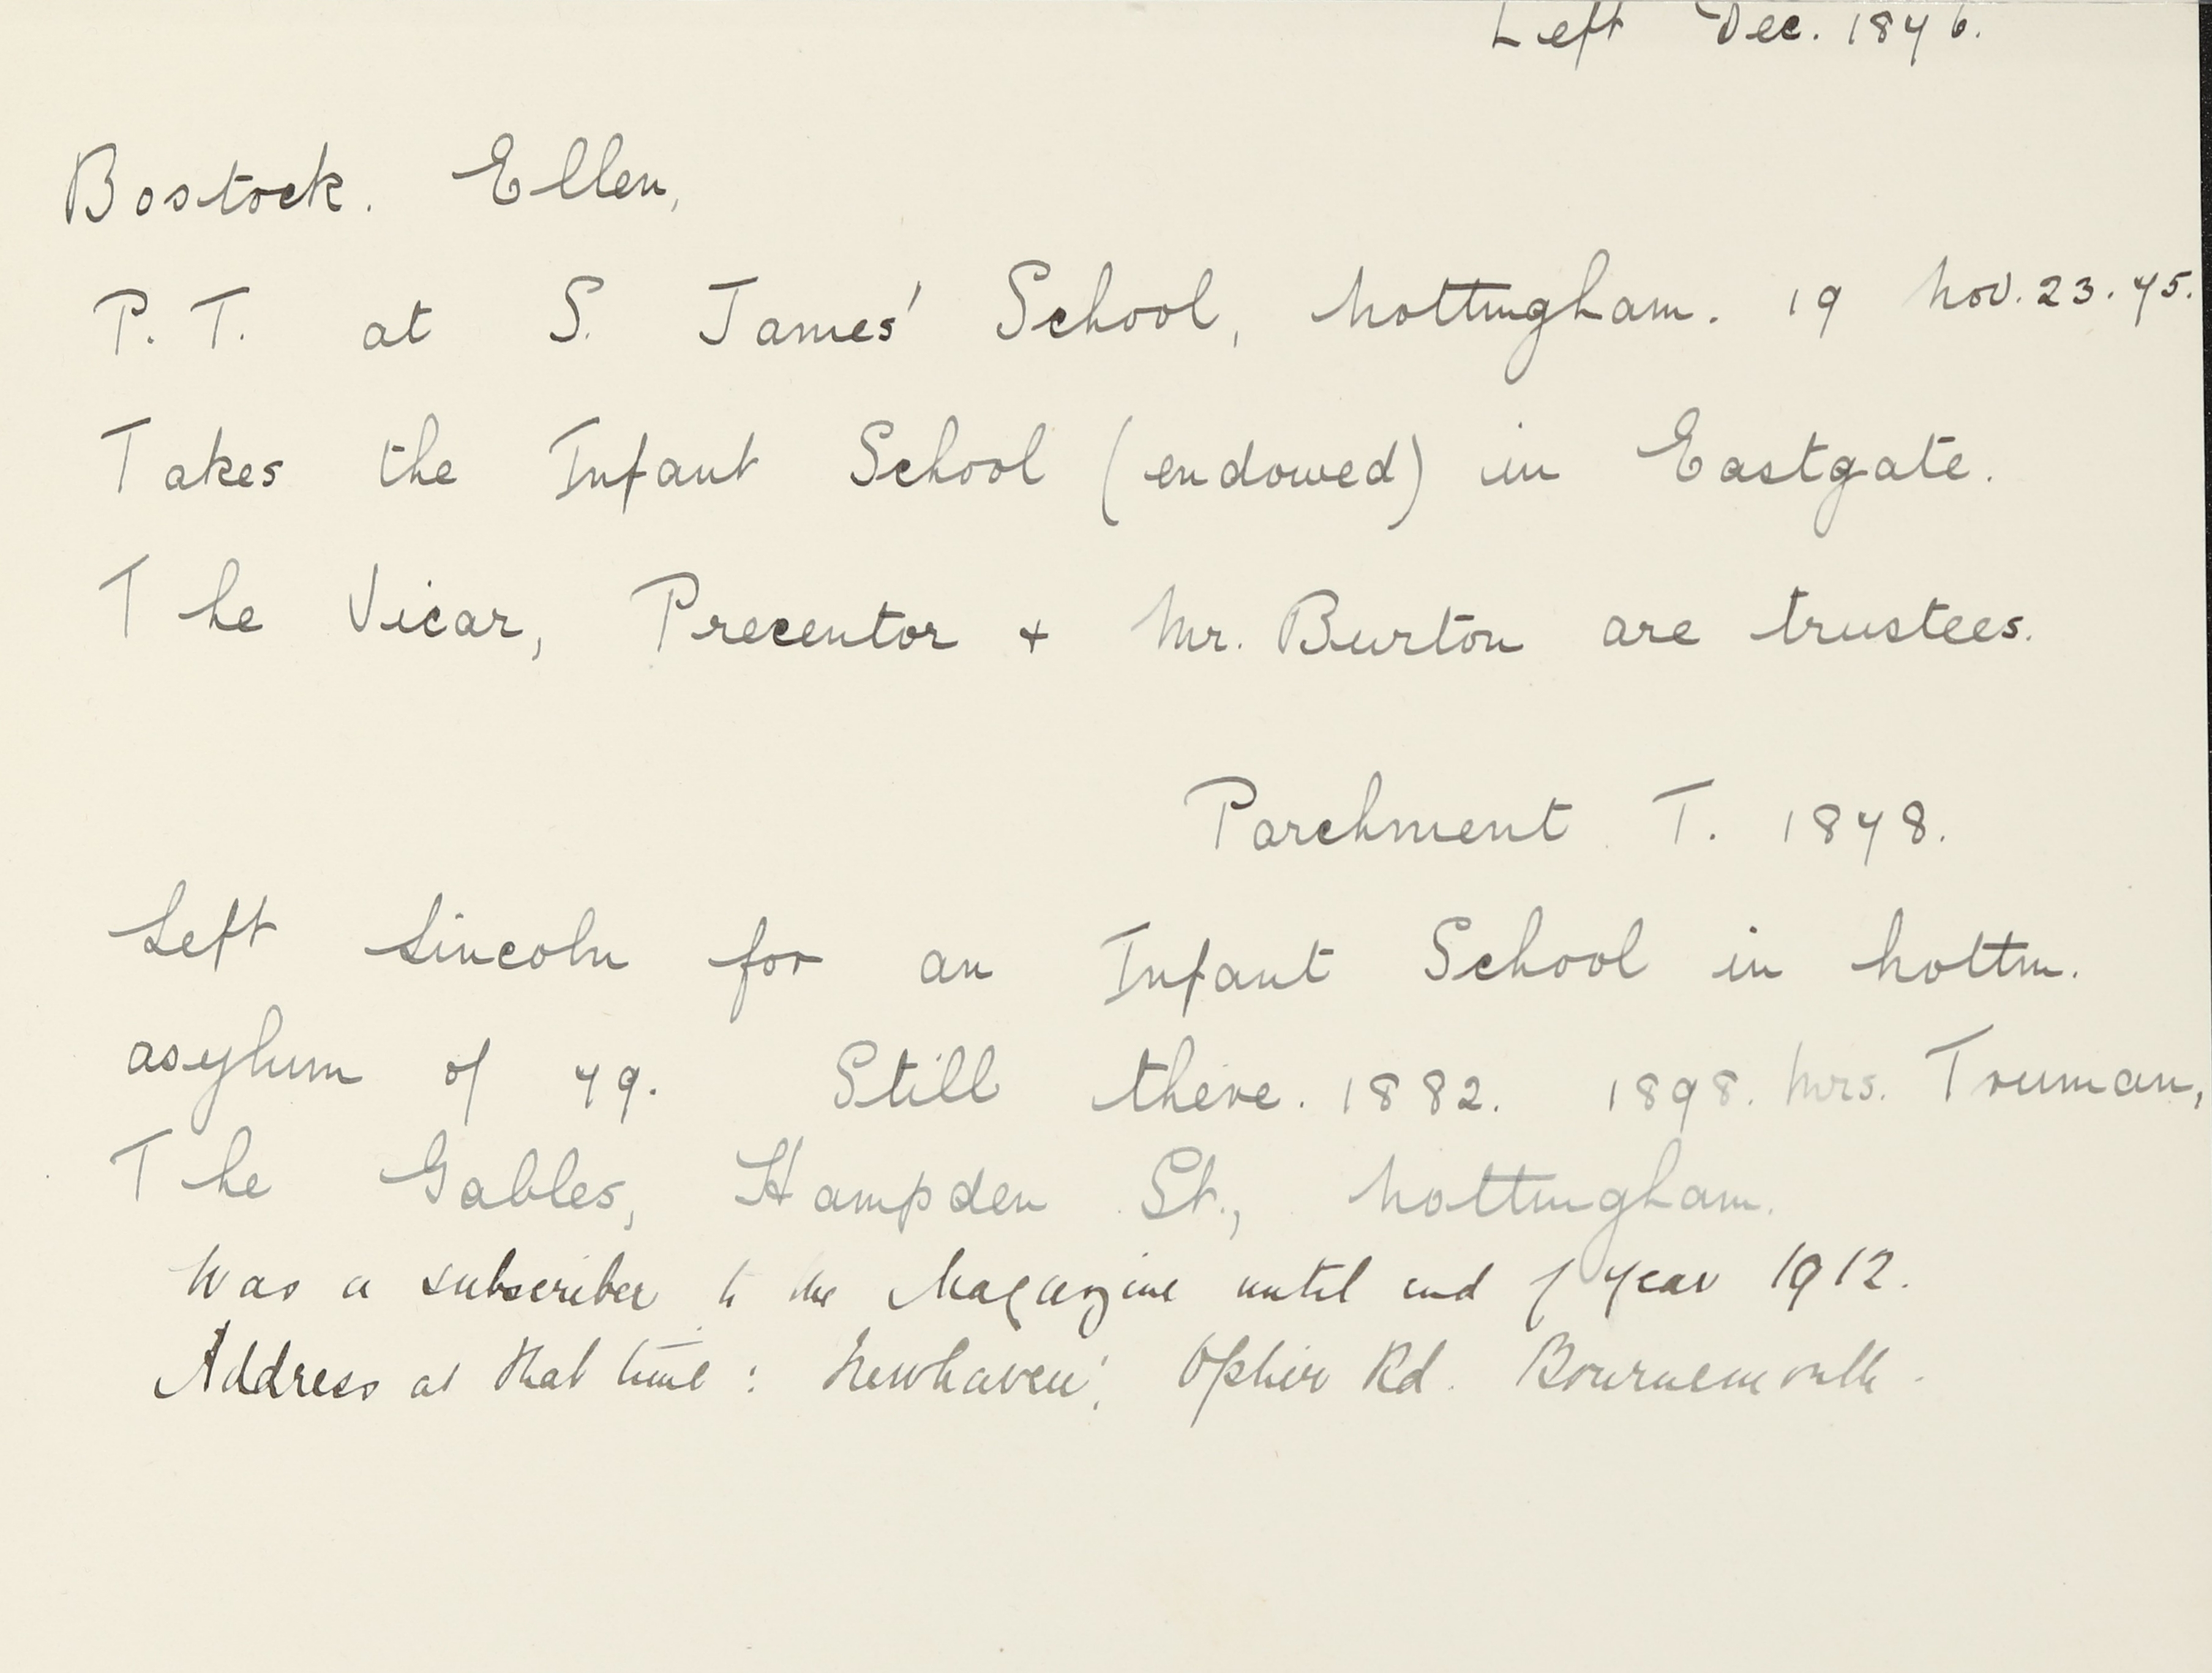 Left Dec. 1876.
Bostock. Ellen,
P. T. at S. James' School, Nottingham. 19 Nov. 23. 75.
Takes the Infant School (endowed) in Eastgate.
The Vicar, Precentor + Mr. Burton are trustees.
Parchment T. 1878.
Left Lincoln for an Infant School in Nottm.
asylum of 79. Still there. 1882. 1898. Mrs. Truman,
The Gables, Hampden St., Nottingham.
Was a subscriber to the Magazine until end of year 1912.
Address at that time: 'Newhaven', Ophir Rd. Bournemouth.